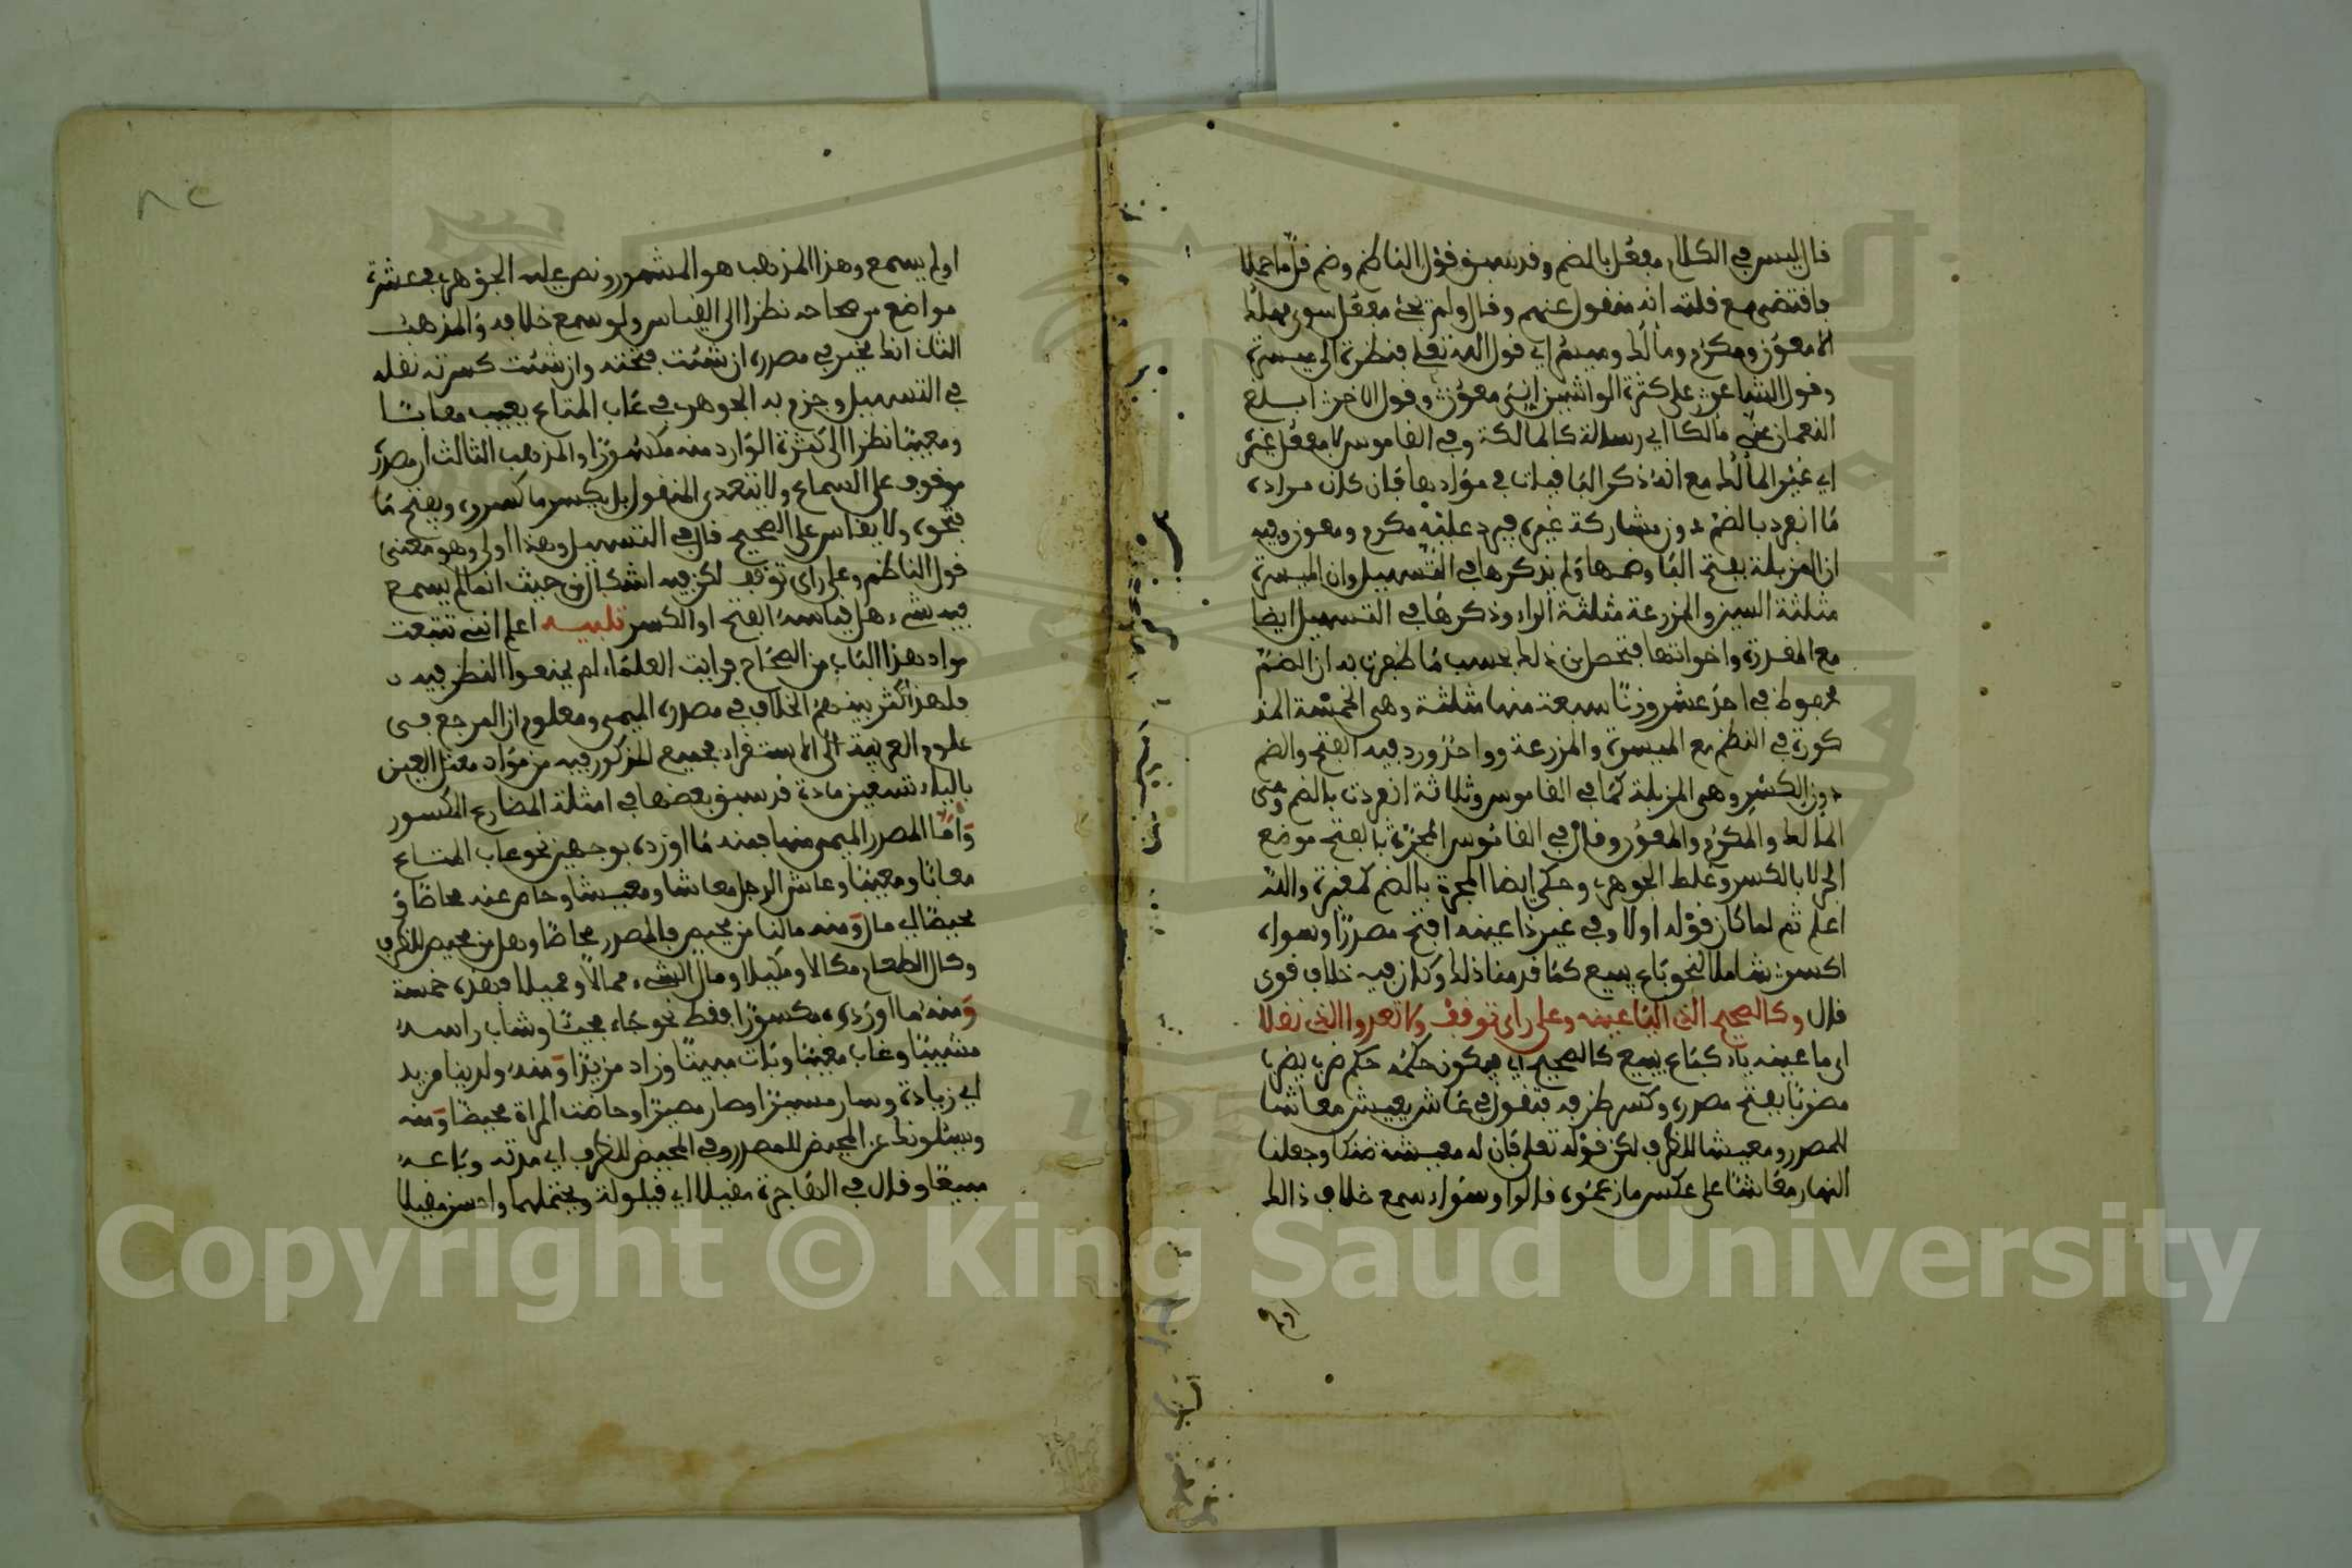 قال ليس في الكلام مفعل بالضم وقد سبق قول الناظم وضم قل ما حملا
فاقتضى مع قلته انه منقول عنهم وقال ولم يجئ مفعل سوى مهلك
الا معون ومكرم ومألك وميسر اي في قول الله تعلى فنظرة الى ميسرة
وقول الشاعر على كثرة الواشين اي معون وقول الاخر ابلغ
النعمان عني مالكا اي رسالة كالمالكة وفي القاموس لا مفعل غيره
اي غير المألك مع انه ذكر الباقيات في موادها فان كان مراده
ما انفرد بالضم دون مشاركة غيره فيرد عليه مكرم ومعون وفيه
ان المزبلة بفتح البا وضمها ولم يذكرها في التسهيل وان الميسرة
مثلثة السين والمزرعة مثلثة الراء وذكرها في التسهيل ايضا
مع المقدرة واخواتها فتحصل من ذلك بحسب ما ظفرت به ان الضم
محفوظ في احد عشر وزنا سبعة منها مثلثة وهي الخمسة المذ
كورة في النظم مع الميسرة والمزرعة وواحد ورد فيه الفتح والضم
دون الكسر وهي المزبلة كما في القاموس وثلاثة انفردت بالضم وهي
المألك والمكرم والمعون وقال في القاموس المجزرة بالفتح موضع
الجر لا بالكسر وغلط الجوهري وحكى ايضا بالضم والله
اعلم ثم لما كان قوله اولا وفي غير ذا عينه افتح مصدرا وسواه
اكسر شاملا لنحو باع يبيع كما قدمنا ذلك وكان فيه خلاف قوي
قال وكالصحيح الذي اليا عينه وعلى راي توقف ولا تعدوا الذي نقلا
اي ما عينه ياء كباع يبيع كالصحيح اي فيكون حكمه حكم ضرب يضرب
مضربا بفتح مصدره وكسر ظرفه فتقول في عاش يعيش معاشا
للمصدر ومعيشا للظرف لكن قوله تعلى فان له معيشة ضنكا وجعلنا
النهار معاشا على عكس ما زعموه قالوا وسواء سمع خلاف ذالك
اولم
او لم يسمع وهذا المذهب هو المشهور ونص عليه الجوهري في عشرة
مواضع من صحاحه نظرا الى القياس ولو سمع خلافه والمذهب
الثاني انك مخير في مصدره ان شئت فتحته وان شئت كسرته نقله
في التسهيل وجزم به الجوهري في عاب المتاع يعيب معابا
ومعيبا نظرا الى كثرة الوارد منه مكسورا والمذهب الثالث ان مصدره
موقوف على السماع ولا نتعدى المنقول بل يكسر ما كسروه ويفتح ما
فتحوه ولا يقاس على الصحيح قال في التسهيل وهذا اولى وهو معنى
قول الناظم وعلى راي توقف لكن فيه اشكال من حيث انما لم يسمع
فيه شيء هل قياسه الفتح او الكسر تنبيه اعلم انني تتبعت
مواد هذا الباب من الصحاح فرايت العلماء لم يمنعوا النظر فيه
فلهذا كثر بينهم الخلاف في مصدره الميمي ومعلوم ان المرجع في
علوم العربية الى الاستقراء فجميع المذكور فيه من مواد معتل العين
بالياء تسعين مادة قد سبق بعضها في امثلة المضارع المكسور
واما المصدر الميمي منها فمنه ما اورده بوجهين نحو عاب المتاع
معابا ومعيبا وعاش الرجل معاشا ومعيشا وحاص عنه محاصا و
محيصا اي مال ومنه ما لنا من محيص فالمصدر محاصا وهل من محيص للظرف
وكال الطعام مكالا ومكيلا ومال الشيء ممالا ومميلا فهذه خمسة
ومنه ما اورده مكسورا فقط نحو جاء مجيئا وشاب راسه
مشيبا وغاب مغيبا وبات مبيتا وزاد مزيدا ومنه ولدينا مزيد
اي زيادة وسار مسيرا وصار مصيرا وحاضت المراة محيضا ومنه
ويسئلونك عن المحيض للمصدر وفي المحيض للظرف اي مدته وباعه
مبيعا وقال في الهاجرة مقيلا اي قيلولة ويحتملهما واحسن مقيلا
Copyright © King Saud University